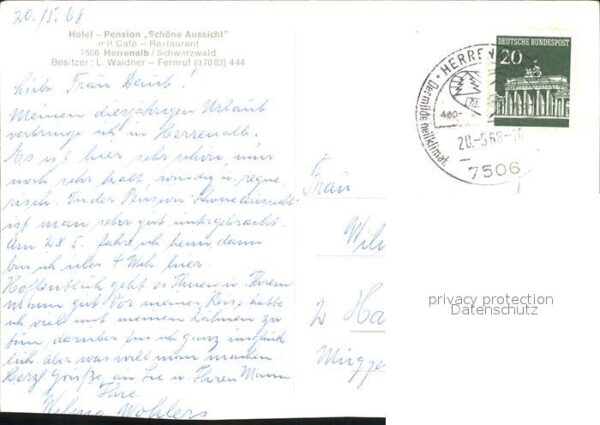 20./5.68
Hotel – Pension „Schöne Aussicht"
mit Café – Restaurant
7506 Herrenalb / Schwarzwald
Besitzer: L. Waidner – Fernruf (07083) 444
Liebe Frau
Meinen diesjährigen Urlaub
verbringe ich in Herrenalb.
Es ist hier sehr schön, nur
noch sehr kalt, windig u. regne-
risch. In der Pension Schöne Aussicht
ist man sehr gut untergebracht.
Am 28.5. fahre ich heim, dann
bin ich über 4 Woh. hier.
Hoffentlich geht es Ihnen u. Ihrem
Mann gut. Vor meiner Reise hatte
ich viel mit meinen Zähnen zu
tun, darüber bin ich ganz unglück-
lich. Aber was will man machen.
Herzl. Grüße, an Sie u. Ihren Mann
Ihre
Wilma Wohlers
DEUTSCHE BUNDESPOST
20
HERREN
Der milde Heilklima
400-
20.-5.68-18
7506
Frau
Wil
2 Ha
Mügge
privacy protection
Datenschutz